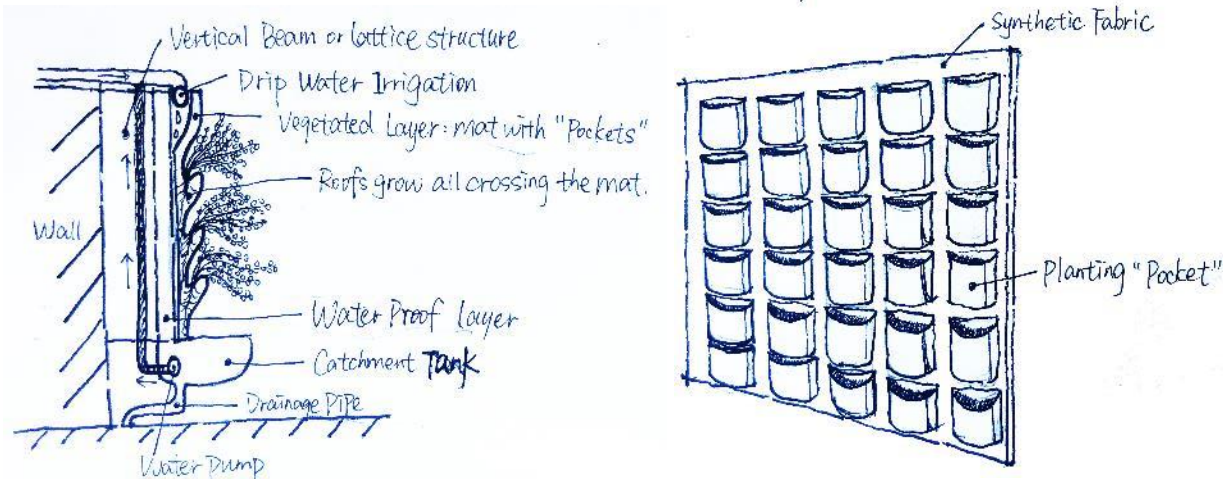 Vertical Beam or lattice structure
Drip Water Irrigation
Vegetated Layer: mat with "Pockets"
Roofs grow all crossing the mat.
Wall
Water Proof Layer
Catchment Tank
Drainage Pipe
Water Pump
Synthetic Fabric
Planting "Pocket"